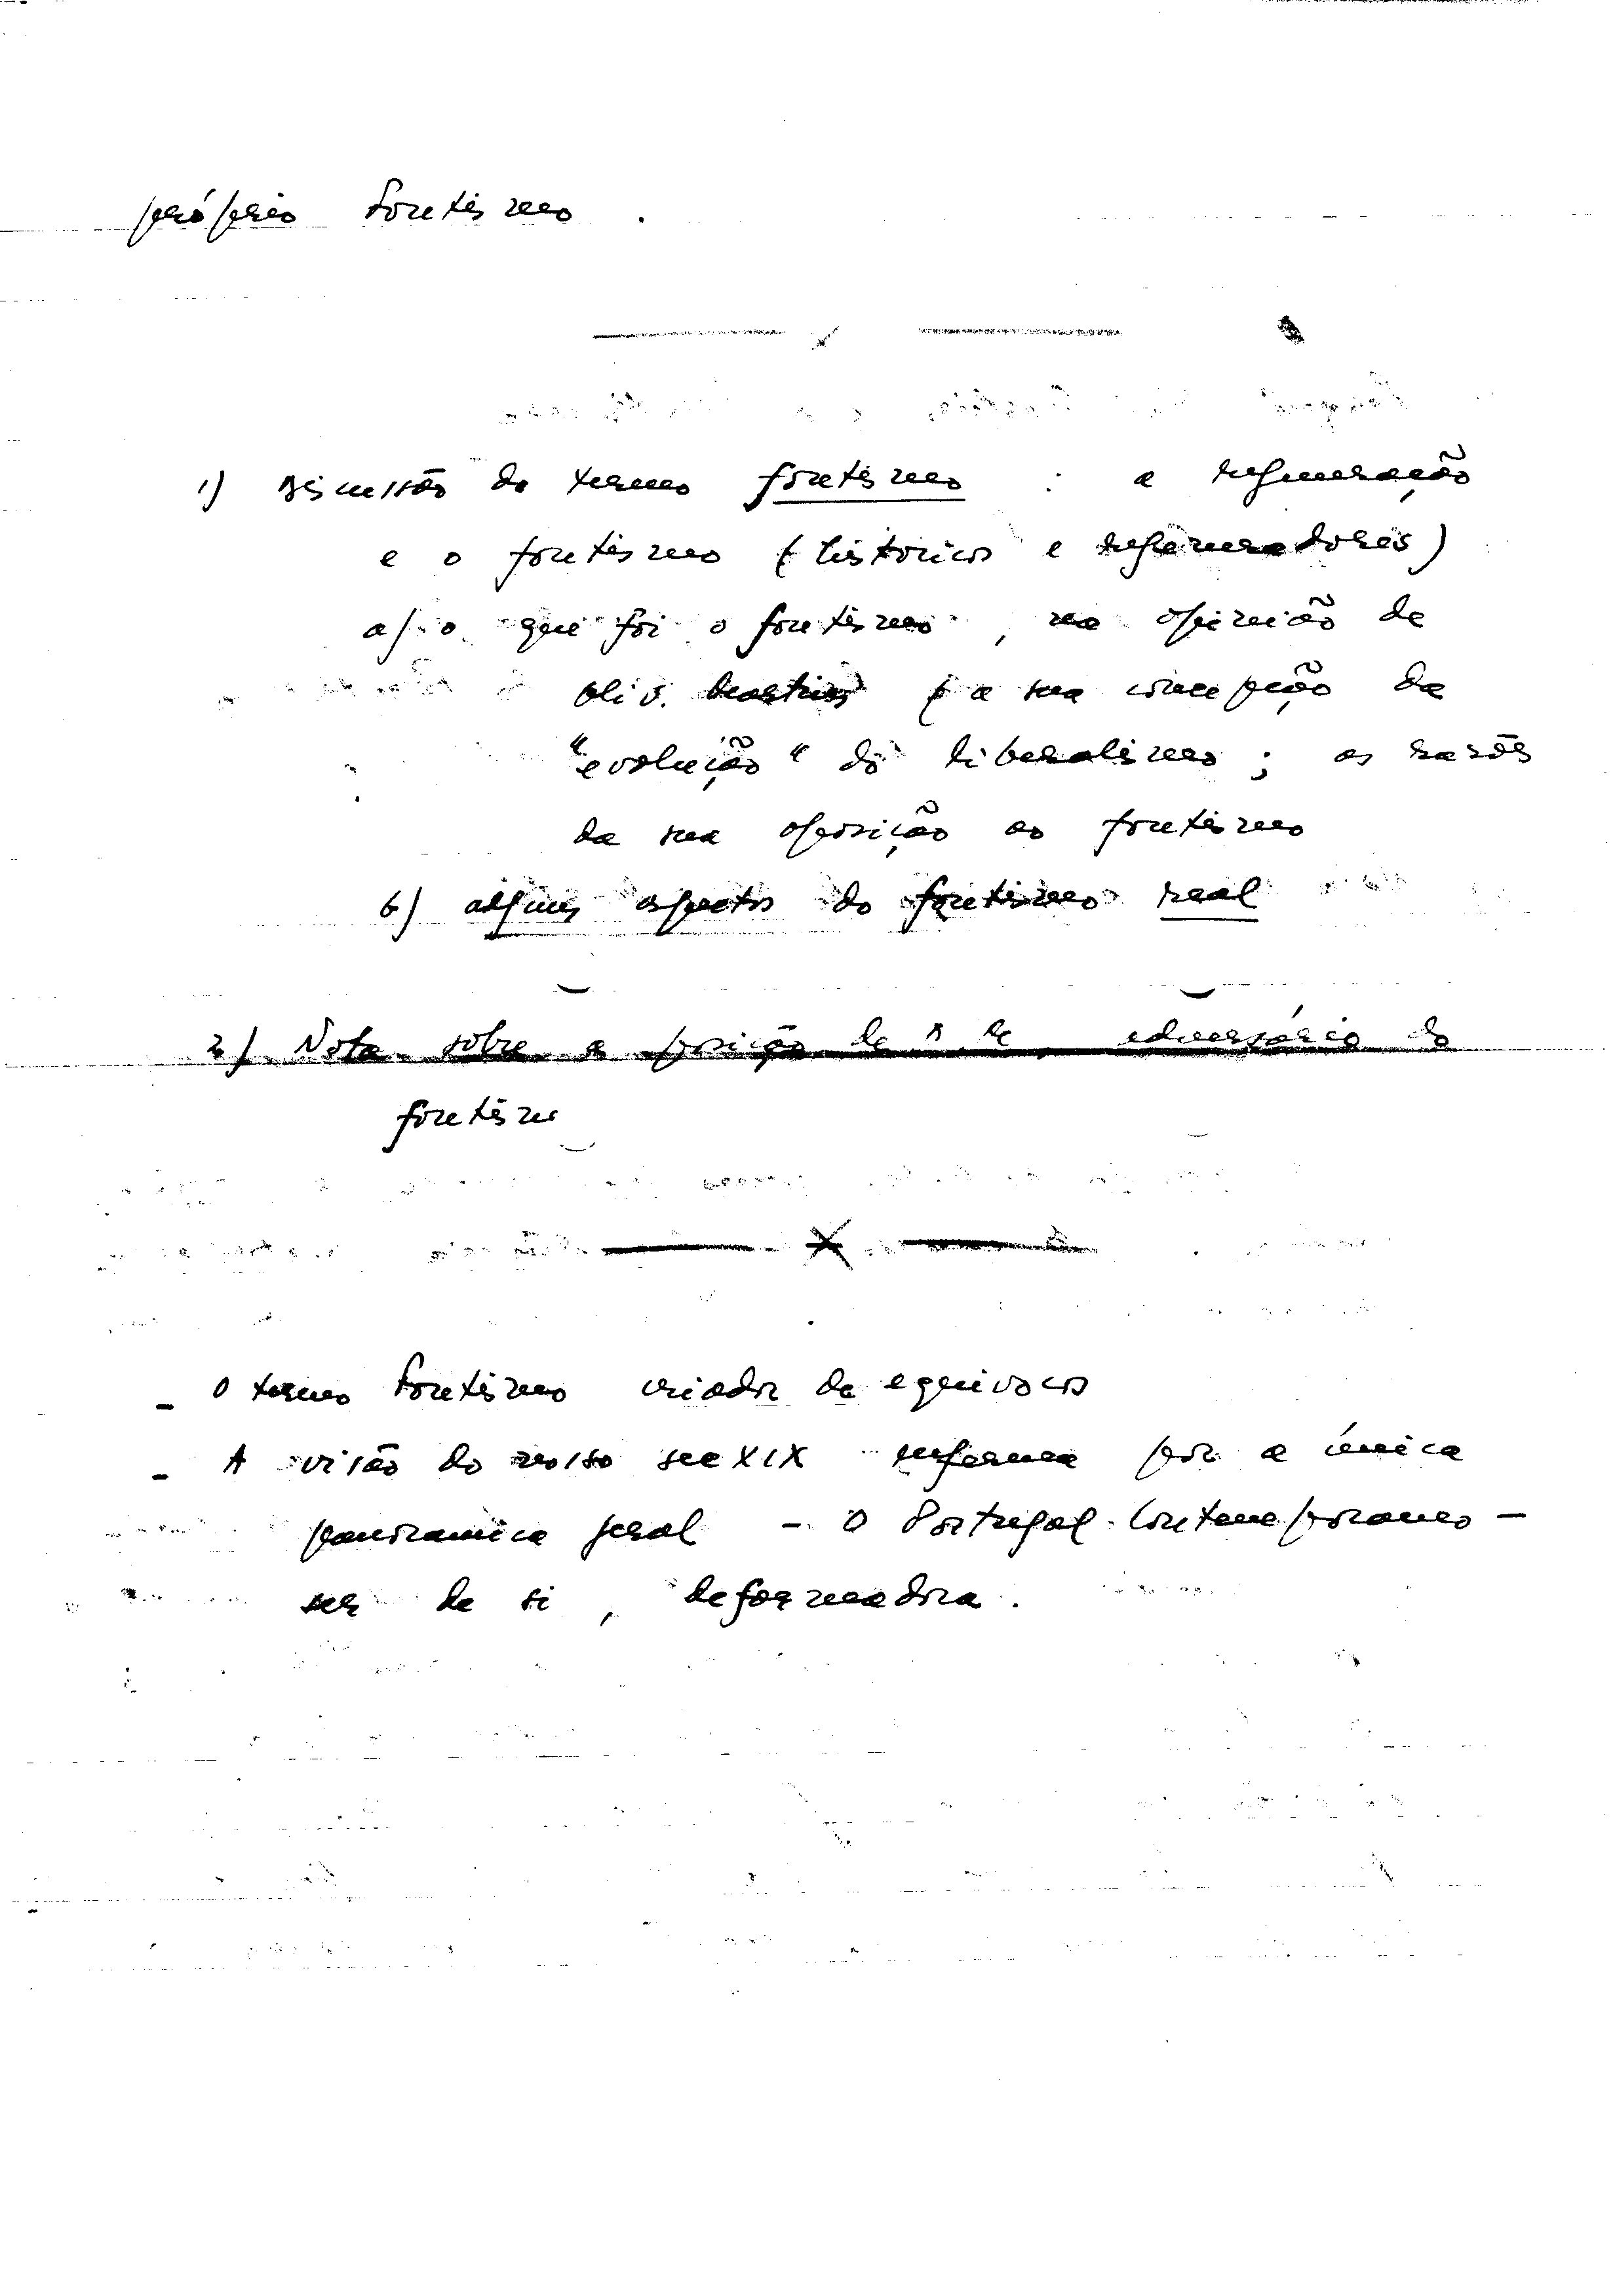 próprio Fontismo.
1) Discussão do termo fontismo : a regeneração
e o fontismo (históricos e regeneradores)
a) o que foi o fontismo, na opinião de
Oliv. Martins (a sua concepção da
"evolução" do liberalismo ; as razões
da sua oposição ao fontismo
b) alguns aspectos do fontismo real
2) Nota sobre a posição de adversário do
fontism
- O termo Fontismo criador de equivocos
- A visão do nosso sec XIX enferma por a única
panoramica geral - O Portugal Contemporaneo -
ser de si, deformadora.